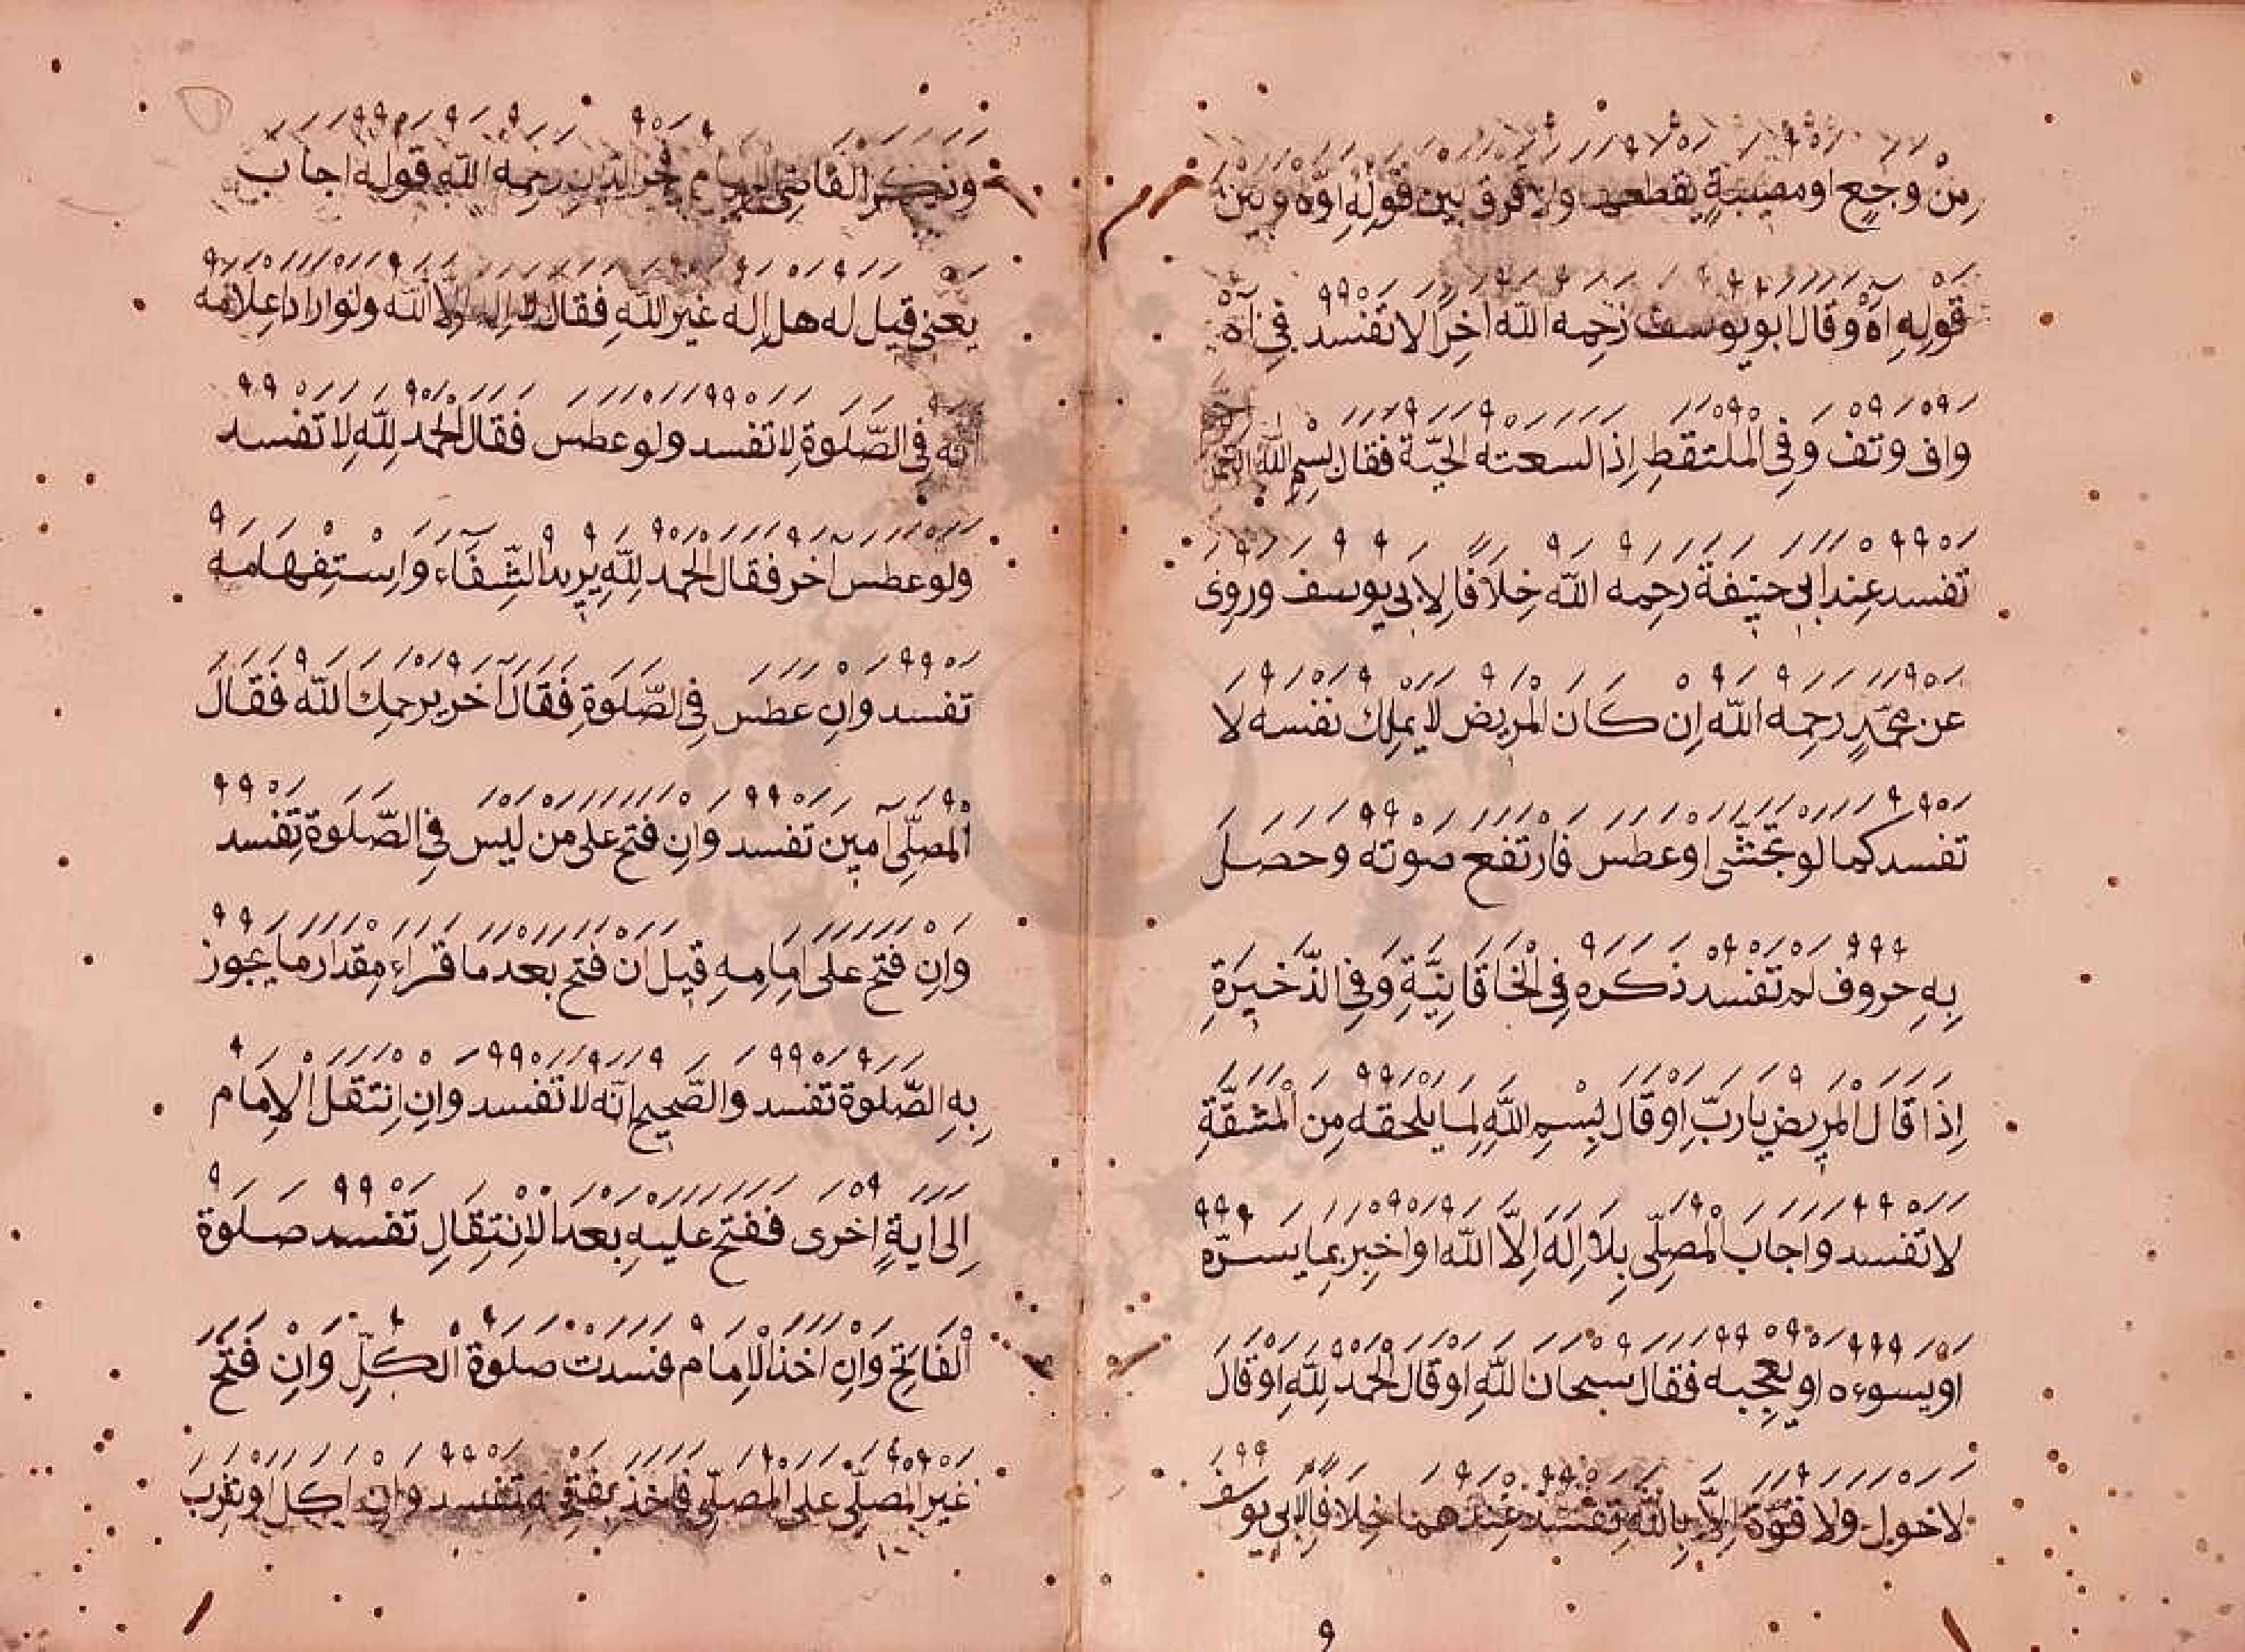 مِنْ وجعٍ او مصيبةٍ يقطعه‍ ولا فرق بين قولِهِ اوّه وبَين
قولِهِ اه وقال ابو يوسف رَحِمه الله اخِرًا لا تفسد فِي آه
واف وتف وَفِي الملتقطِ اِذا لسعته الحيّة فقال بِسْمِ اللهِ
تفسد عِند ابِي حنِيفة رحِمه الله خِلَافا لِابِي يوسف وروِى
عن محمّدٍ رحِمه الله اِن كان المرِيض لا يملِك نفسه لا
تفسد كما لو تجشّى اوعطس فارتفع صوته وحصل
بِهِ حروف لم تفسد ذكره فِي الْخَاقَانِيَّةِ وَفِي الذَّخِيرَةِ
اِذا قال المرِيض يا ربِّ او قال بِسْمِ اللهِ لِما يلحقه مِن المشقّةِ
لا تفسد و اجاب المصلِّى بِلَا اِلهَ اِلَّا الله او اخبِر بِما يسرّه
او يسوءه او يعجِبه فقال سبحان اللهِ او قال الحمد لِلّهِ او قال
لا حول ولا قوّة اِلَّا بِاللهِ تفسد عِندهما خِلافا لِابِي يوسف
و
القاضِى فخر الدِّين رحِمه الله قوله اجاب
يعنِى قيل له هل اِله غير اللهِ فقال لا اِله اِلّا الله ولو اراد اعلامه
انّه فِي الصّلوةِ لا تفسد ولو عطس فقال الحمد لِلّهِ لا تفسد
ولو عطس آخر فقال الحمد لِلّهِ يرِيد الشِّفَاءَ وَاِسْتِفْهَامه
تفسد وان عطس فِي الصّلوةِ فقال آخر يرحمك الله فقال
المصلِّى آمِين تفسد وَاِن فتح على من ليس فِي الصّلوة تفسد
وَاِنْ فتح على اِمامِهِ قِيل ان فتح بعد ما قراء مِقدار ما يجوز
بِهِ الصّلوة تفسد والصّحِيح انّه لا تفسد واِنِ انتقل الاِمَام
اِلى ايةٍ اخرى ففتح عليهِ بعد الاِنتِقالِ تفسد صلوة
الفاتِحِ وَاِنْ اخذ الاِمام فسدت صلوة الكلِّ وَاِنْ فتح
غير المصلِّى على المصلِّى فاخذ بِفتحِهِ تفسد وان اكل او